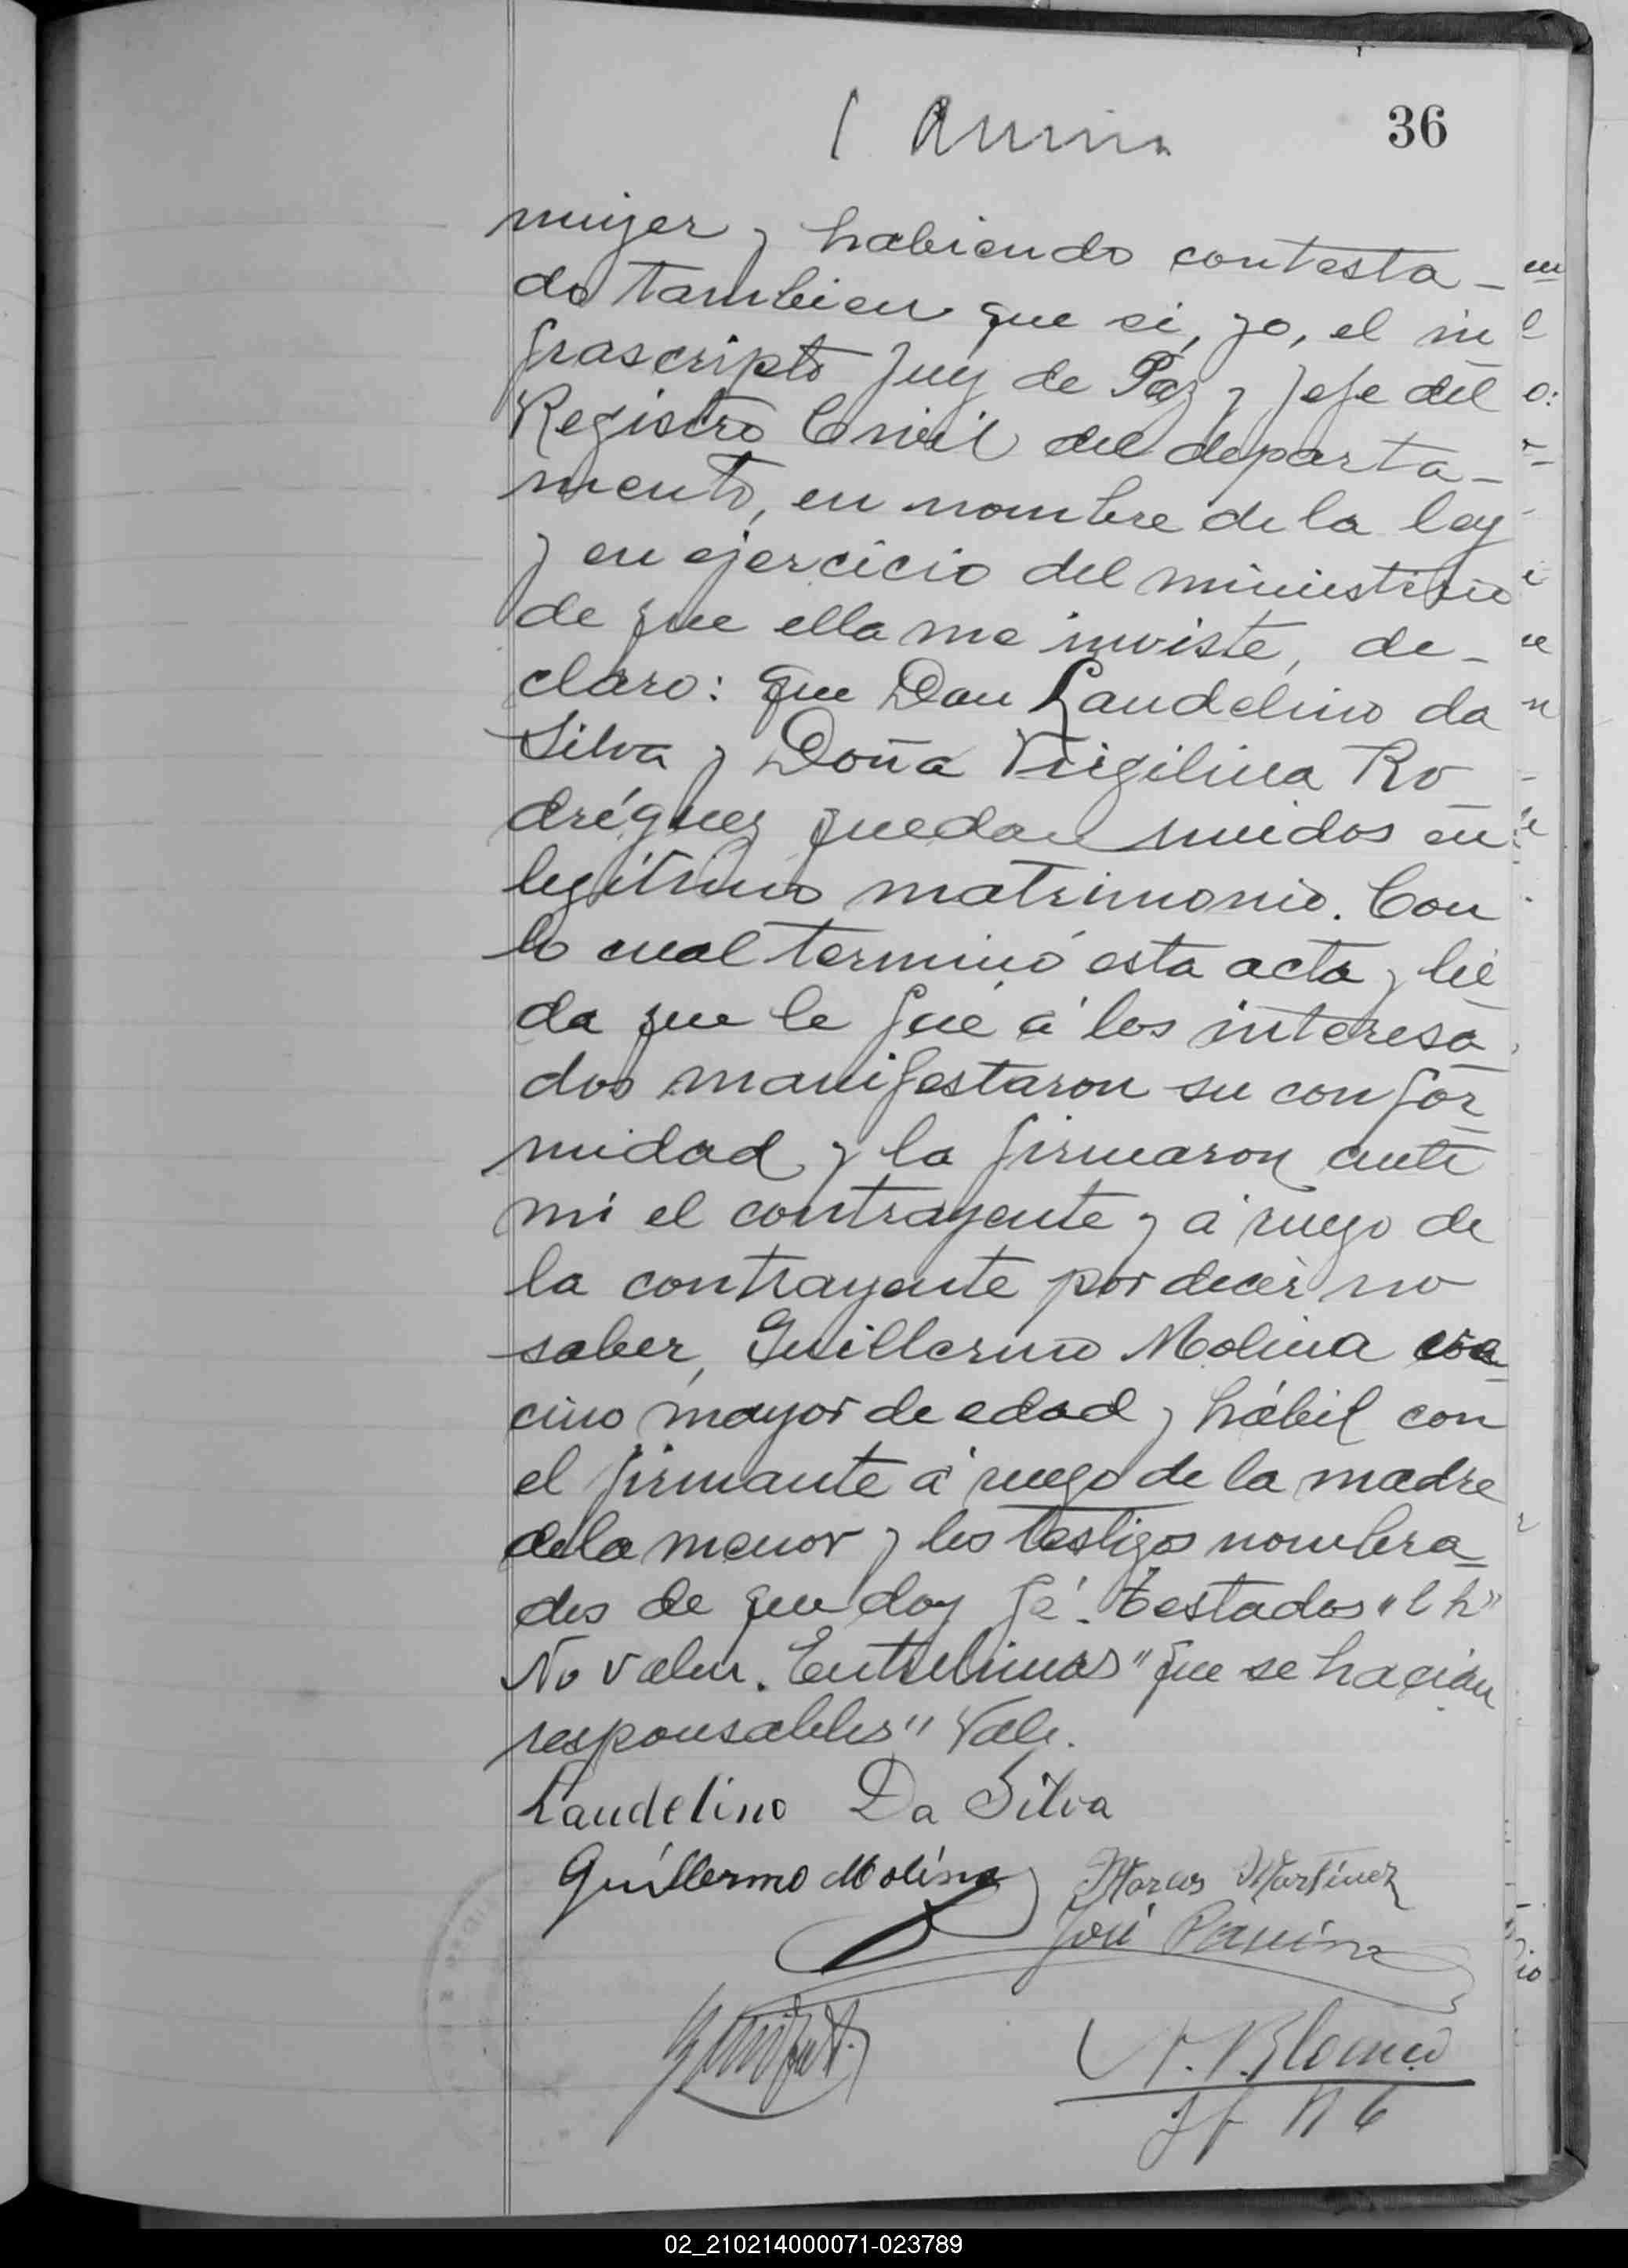 36
mujer y habiendo contesta-
do tambien que si, yo, el in
frascripto Juez de Paz y Jefe del
Registro Civil del departa-
mento, en nombre de la ley
y en ejercicio del ministerio
de que ella me inviste, de-
claro: que Don Laudelino da
Silva y Doña Virgilina Ro-
dríguez quedan unidos en
legítimo matrimonio. Con
lo cual terminó esta acta y lei
da que le fué á los interesa
dos manifestaron su confor
midad y la firmaron ante
mi el contrayente y á ruego de
la contrayente por decir no
saber, Guillermo Molina ve
cino mayor de edad y hábil con
el firmante á ruego de la madre
de la menor y los testigos nombra
dos de que doy fé. Testados "l h"
No valen. Entrelineas "que se hacian
responsables" Vale.
Laudelino Da Silva
Guillermo Molina Marcos Martínez
José
02_210214000071-023789